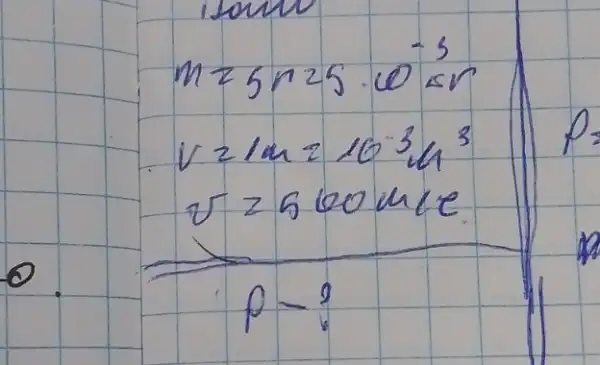 m = 5г = 5 · 10⁻³ кг
V = 1л = 10⁻³ м³
v = 500 м/с
P - ?
P=